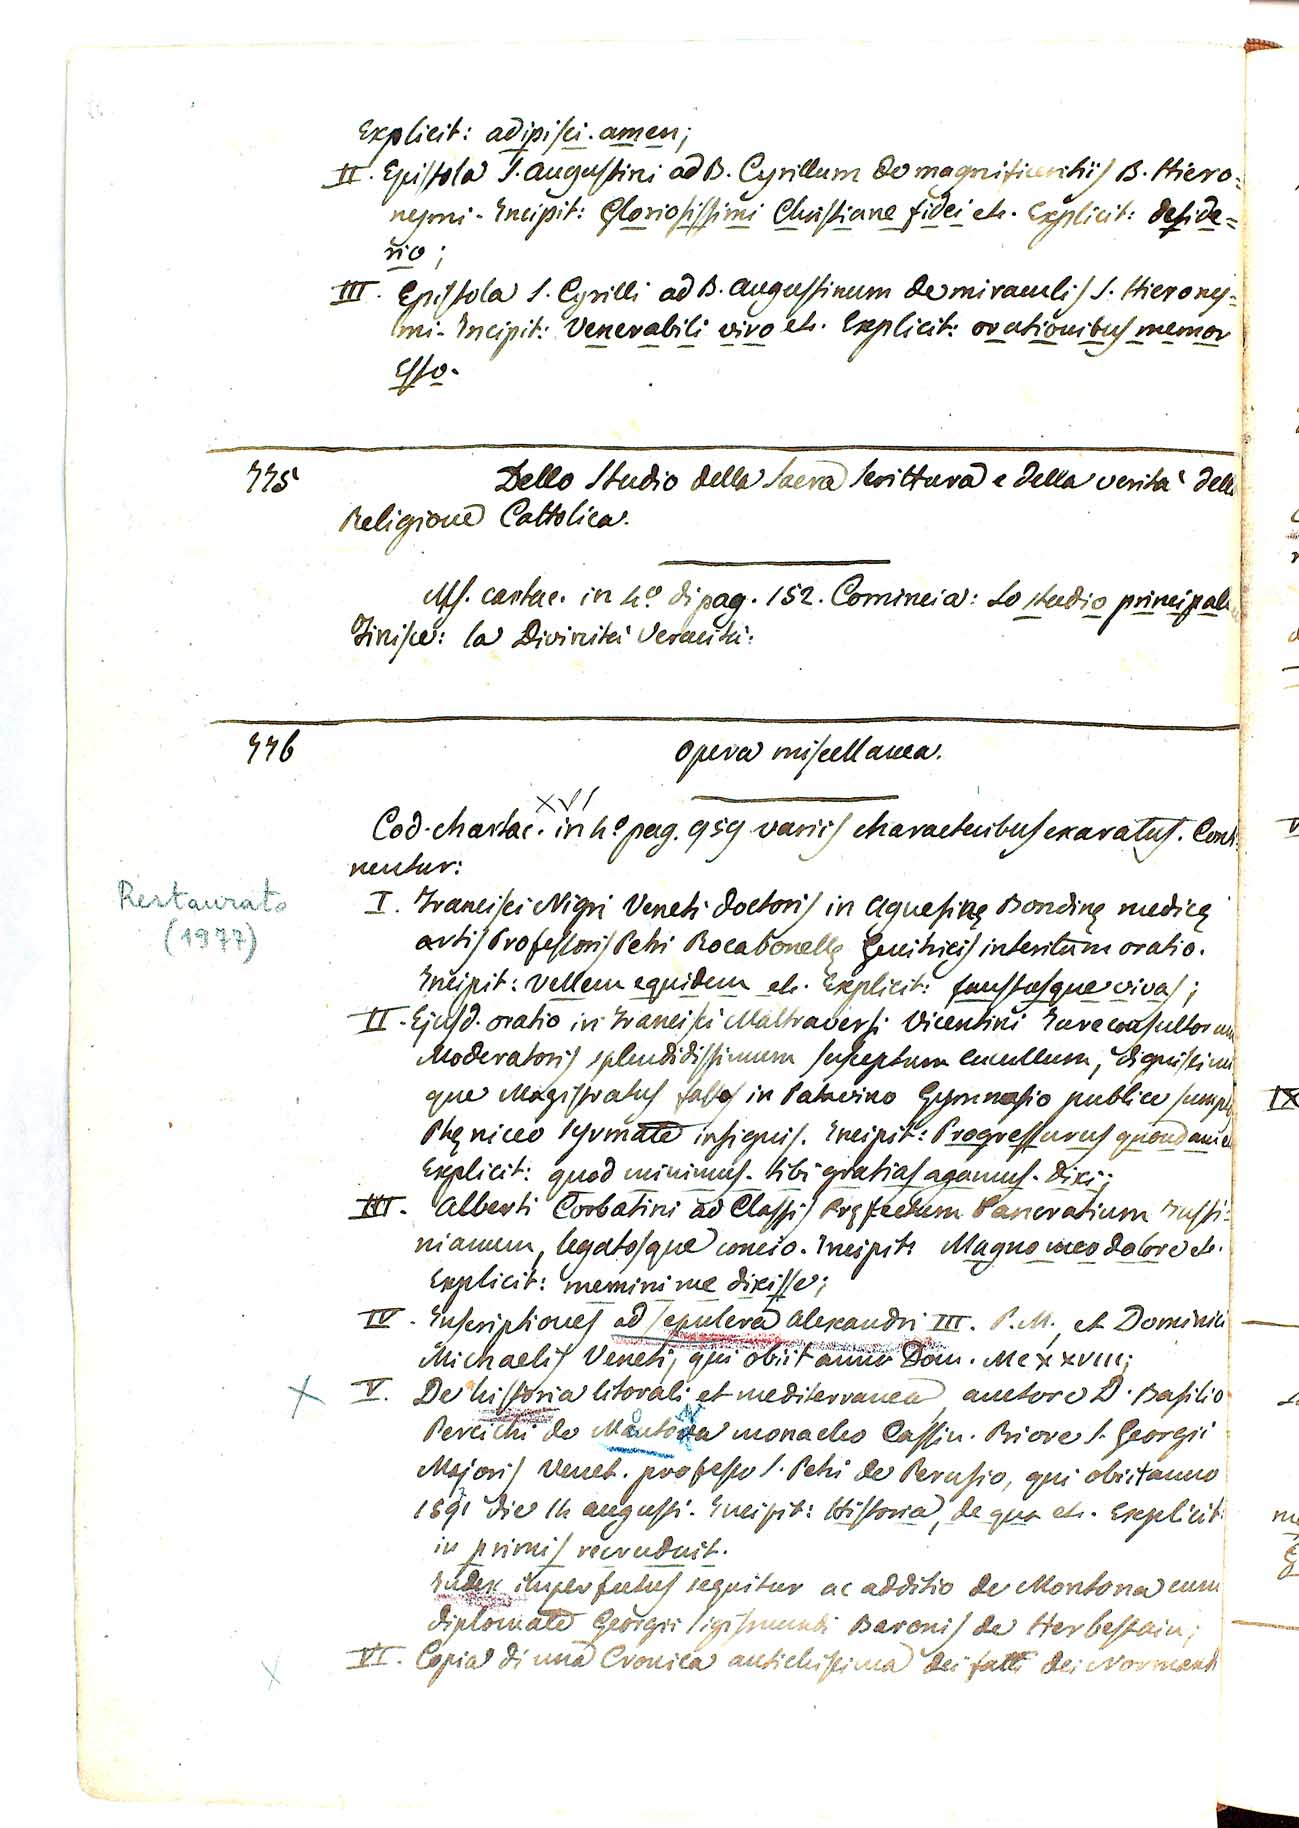 Explicit: adipisci. amen;
II. Epistola S. Augustini ad B. Cyrillum de magnificentiis B. Hiero=
nymi. Incipit: Gloriosissimi Christiane fidei etc. Explicit: deside=
rio;
III. Epistola S. Cyrilli ad B. Augustinum de miraculis S. Hierony=
mi. Incipit: Venerabili viro etc. Explicit: orationibus memor
Esto.
775 Dello studio della Sacra Scrittura e della verità della
Religione Cattolica.
Ms. cartac. in 4º di pag. 152. Comincia: Lo studio principal
Finisce: la Divinità veracità.
776 Opera miscellanea.
XVI
Cod. chartac. in 4º pag. 959 variis characteribus exaratus. Conti
nentur:
Restaurato
(1977)
I. Francisci Nigri Veneti doctoris in Agnesinę Bondinę medicę
artis Professoris Petri Rocabonellę Genitricis interitum oratio.
Incipit: Vellem equidem etc. Explicit: faustasque vivas;
II. Ejusd. oratio in Francisci Maltraversi Vicentini Jureconsultorum
Moderatoris splendidissimum susceptum cucullum, dignissimi
que Magistratus in Patavino Gymnasio publice sump
Phęniceo syrmate insignis. Incipit: Progressurus quondam e
Explicit: quod minimus. tibi gratias agamus. dixi;
III. Alberti Corbatini ad Classis Pręfectum Pancratium Justi=
nianum, legatosque concio. Incipit: Magno meo dolore etc.
Explicit: memini me dixisse;
IV. Inscriptiones ad sepulcra Alexandri III. P. M., et Dominici
Michaelis Veneti, qui obiit anno Dom. MCXXVIII;
X V. De historia litorali et mediterranea, auctore D. Basilio
Percichi de Montona monacho Cassin. Priore S. Georgii
Majoris Venet. professo S. Petri de Perusio, qui obiit anno
1591 die 14 augusti. Incipit: Historia, de qua etc. Explicit:
in primis recruduit.
Index imperfectus sequitur ac additio de Montona cum
diplomate Georgii Sigismundi Baronis de Herbestain;
X VI. Copia di una Cronica antichissima dei fatti dei Normandi